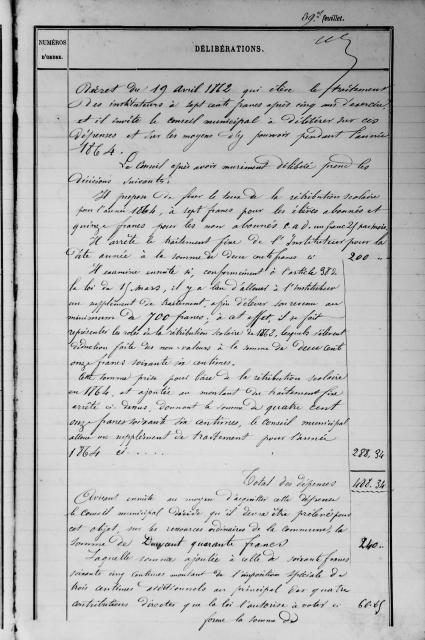 39e feuillet.
NUMÉROS
D'ORDRE.
DÉLIBÉRATIONS.
Décret du 19 Avril 1862 qui élève le traitement
des instituteurs à sept cents francs après cinq ans d'exercice,
et il invite le conseil municipal à délibérer sur ces
dépenses et sur les moyens d'y pourvoir pendant l'année
1864.
Le Conseil après avoir mûrement délibéré prend les
décisions suivantes:
Il propose de fixer le taux de la rétribution scolaire
pour l'année 1864, à sept francs pour les élèves abonnés et
quinze francs pour les non abonnés c.a.d. un franc 25 par mois.
Il arrête le traitement fixe de l'Instituteur pour la
dite année à la somme de deux cents francs ci 200 "
Il examine ensuite si, conformément à l'article 38 de
la loi du 15 mars, il y a lieu d'allouer à l'instituteur
un supplément de traitement, afin d'élever son revenu au
minimum de 700 francs; à cet effet, il se fait
représenter les rôles de la rétribution scolaire de 1862, lesquels s'élèvent
déduction faite des non-valeurs à la somme de Deux cent
onze francs soixante six centimes.
Cette somme prise pour base de la rétribution scolaire
en 1864, et ajoutée au montant du traitement fixe
arrêté ci dessus, donnant la somme de quatre cent
onze francs soixante six centimes, le Conseil municipal
alloue un supplément de traitement pour l'année
1864 ci ..... 288,34
Total des dépenses 488,34
Avisant ensuite au moyen d'acquitter cette dépense
le Conseil municipal décide qu'il devra être prélevé pour
cet objet, sur les ressources ordinaires de la commune, la
somme de Deux cent quarante francs 240 "
Laquelle somme ajoutée à celle de soixante francs
soixante cinq centimes montant de l'imposition spéciale de
trois centimes additionnels au principal des quatre
contributions directes que la loi l'autorise à voter ci 60.65
forme la somme de